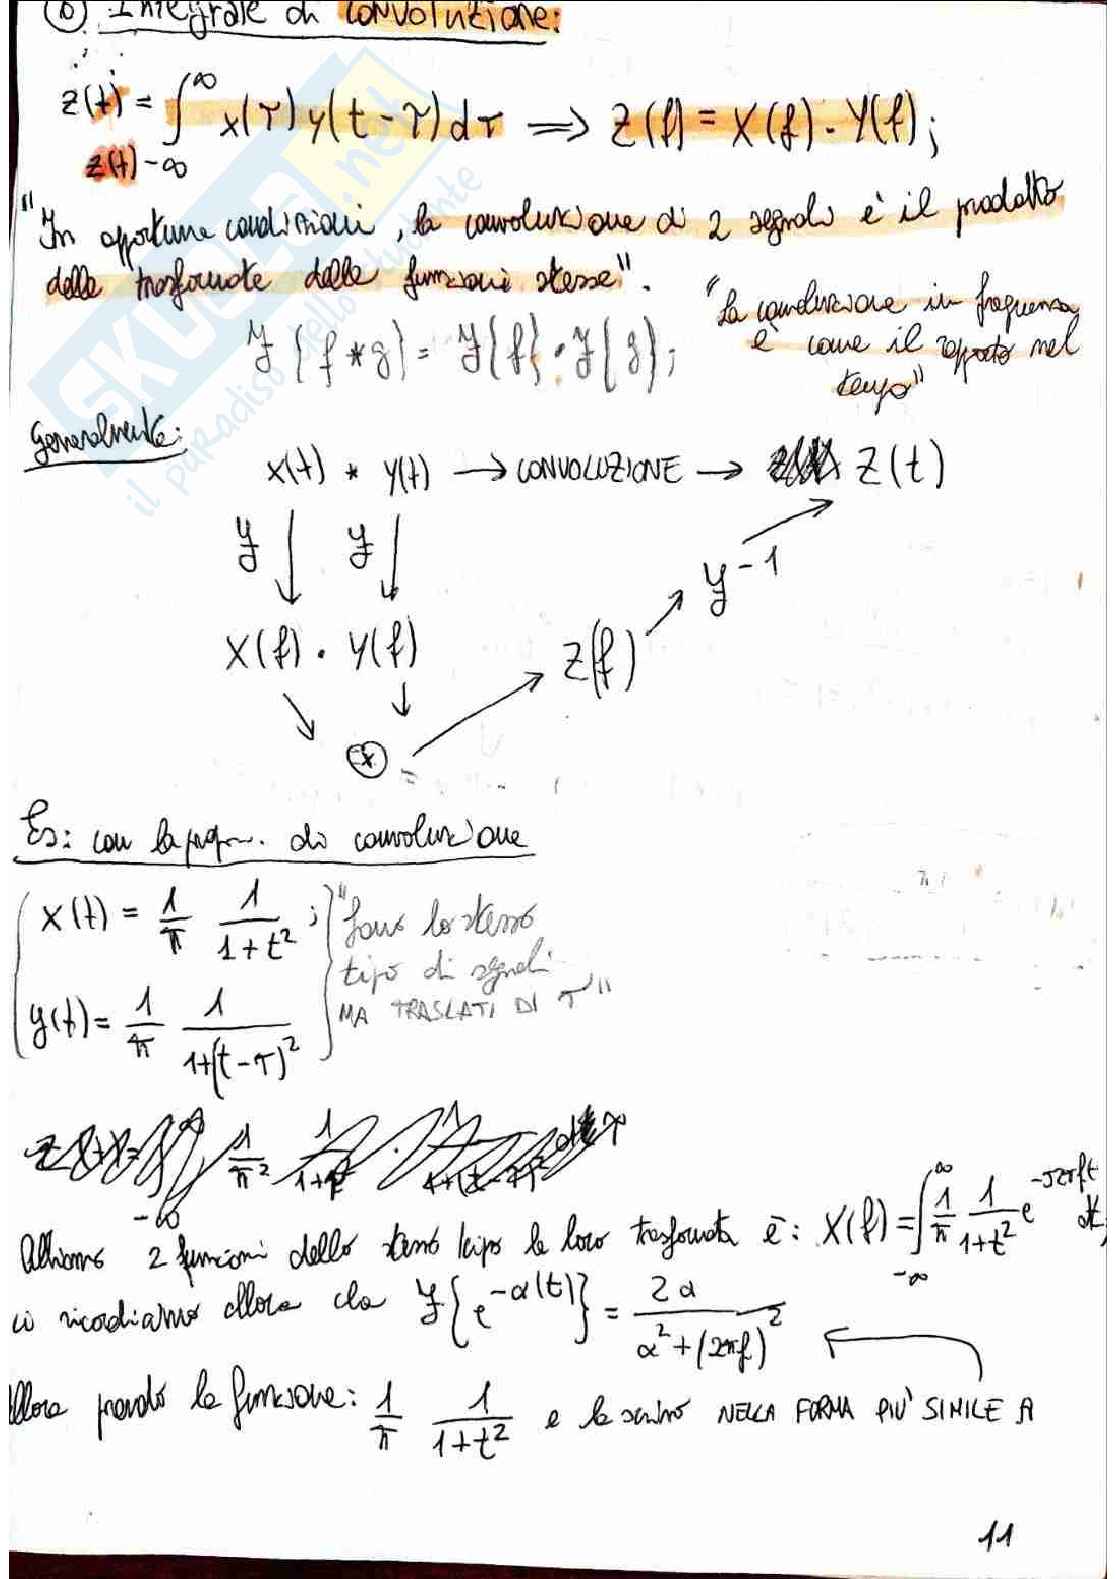 (6) Integrale di convoluzione:
z(t) = ∫_{-∞}^{∞} x(τ) y(t-τ) dτ ⟹ Z(f) = X(f) · Y(f);
z(t)
"In opportune condizioni, la convoluzione di 2 segnali è il prodotto
delle trasformate delle funzioni stesse".
"La convoluzione in frequenza
è come il opposto nel
tempo"
F{f*g} = F{f} · F{g};
Generalmente:
x(t) * y(t) → CONVOLUZIONE → Z(t)
F ↓ F ↓
F^{-1}
X(f) · Y(f)
Z(f)
(x) =
Es: con la propr. di convoluzione
x(t) = 1/π 1/(1+t²);
"Sono lo stesso
tipo di segnali
MA TRASLATI DI τ"
y(t) = 1/π 1/(1+(t-τ)²)
Abbiamo 2 funzioni dello stesso tipo la loro trasformata è: X(f) = ∫_{-∞}^{∞} 1/π 1/(1+t²) e^{-j2πft} dt,
ci ricordiamo allora che F{e^{-α|t|}} = 2α/(α²+(2πf)²)
allora prendo la funzione: 1/π 1/(1+t²) e la scrivo NELLA FORMA PIU' SIMILE A
11
SKUOLA.net
il paradiso dello studente